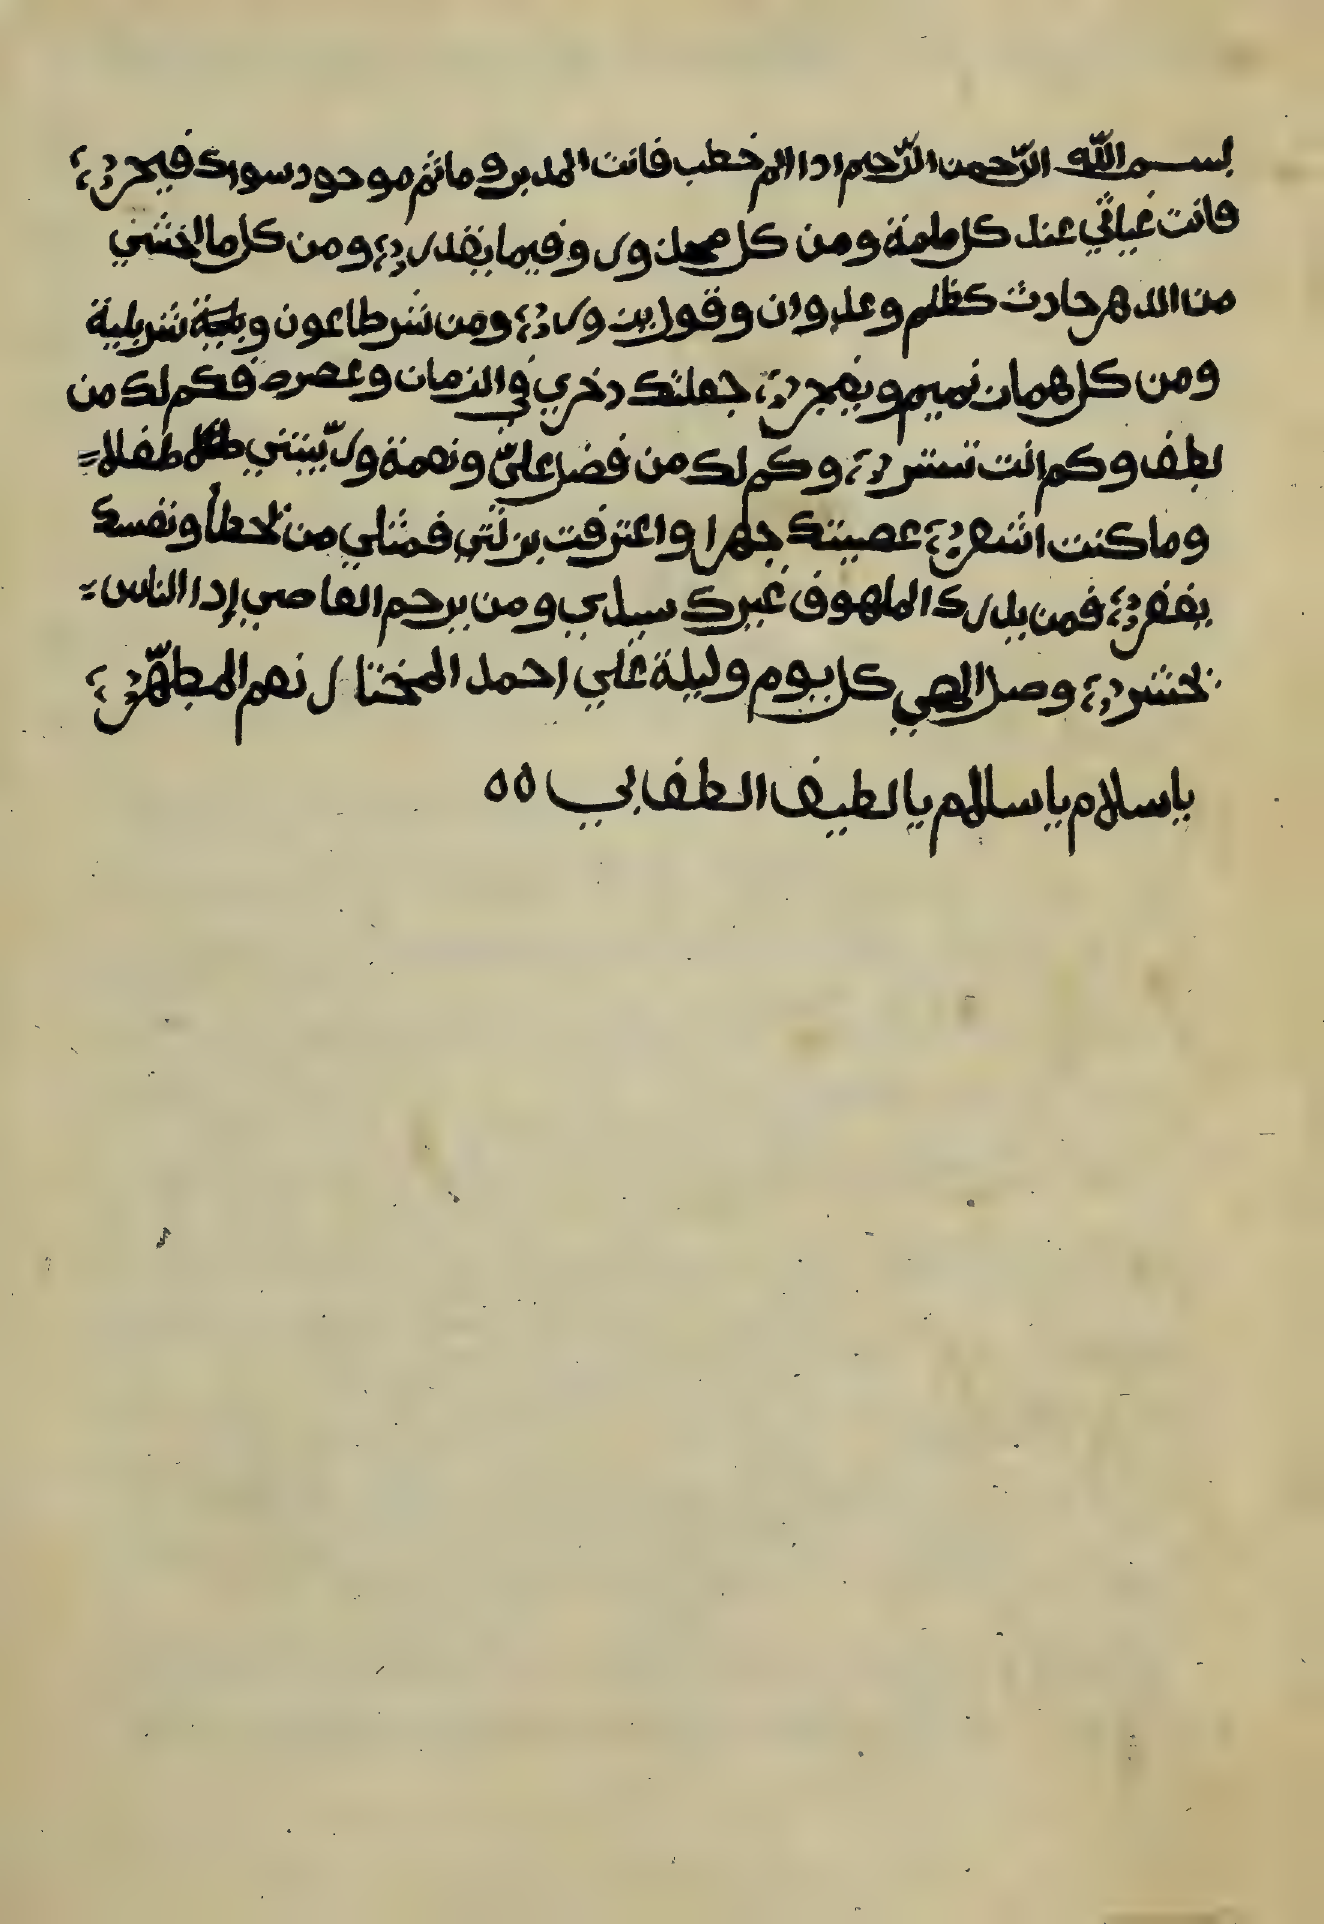 بسم الله الرّحمن الرّحيم اذا الم خطب فانت المدبر وماثم موجود سواك فيحر
فانت غياثي عند كل ملمة ومن كل محذور وفيما يقدر ومن كل ما اخشى
من الدهر حادث كظلم وعدوان وقول يزور ومن شر طاعون وبلية
ومن كل هماز نميم ويفجر جعلتك دخري في الزمان وعصره فكم لك من
لطف وكم انت تستر وكم لك من فضل عليّ ونعمة وربّيتني طفلا
وما كنت اشعر عصيتك جهرا واعترفت بزلتي فمثلي من اخطأ ونفسك
يغفر فمن يدرك الملهوف غيرك سيدي ومن يرحم العاصي إذا الناس
تحشر وصل الهي كل يوم وليلة على احمد المختار نعم المطهّر
ياسلام ياسالم يالطيف الطف بي ٥٥